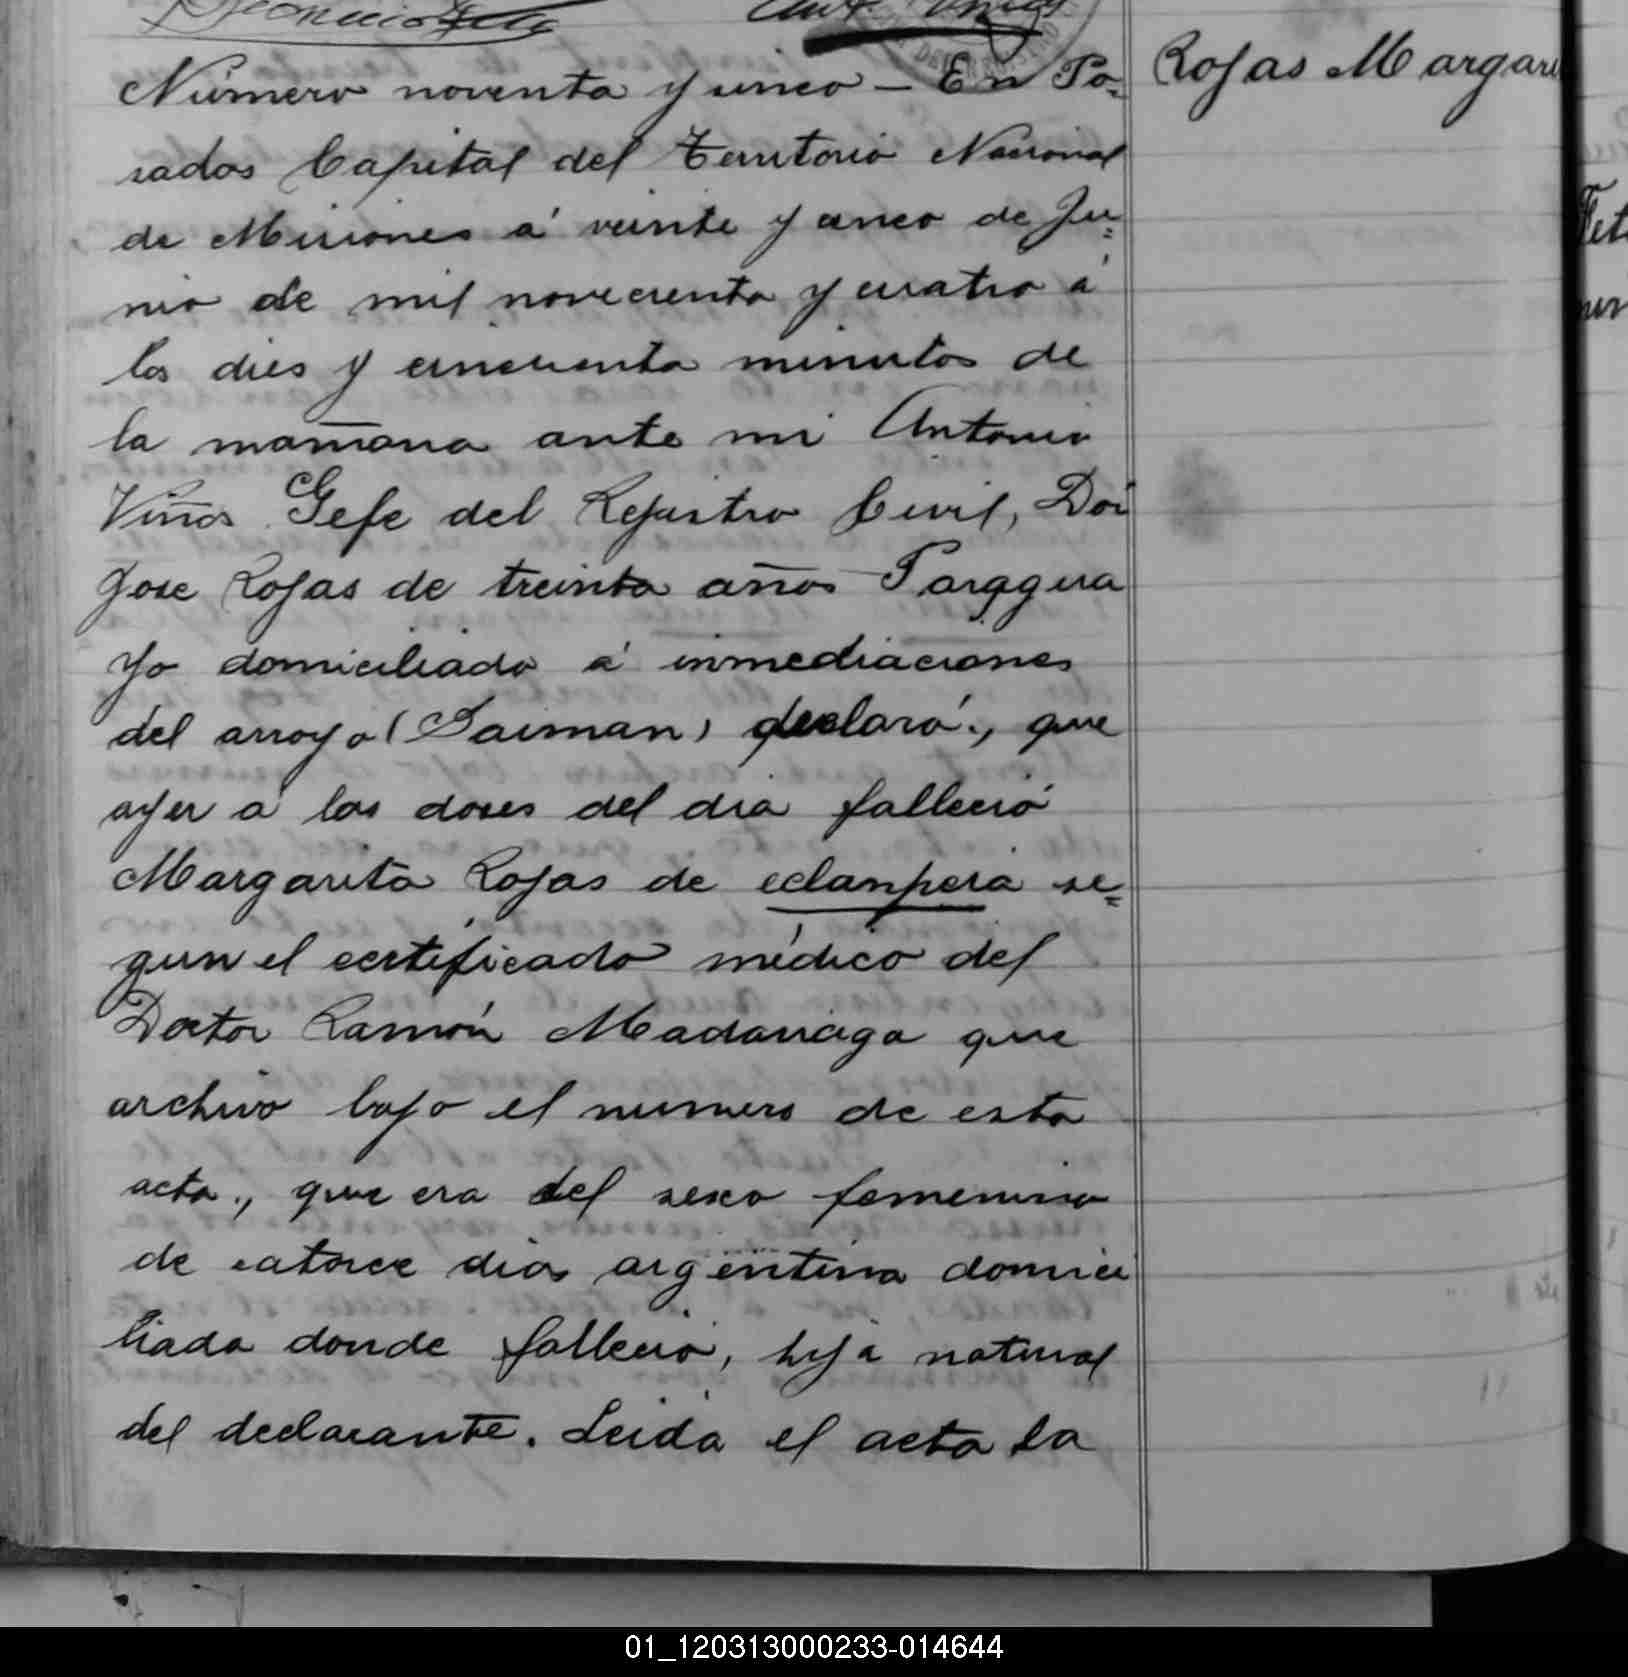 Número noventa y cinco — En Po- Rojas Margari
sadas Capital del Territorio Nacional
de Misiones á veinte y cinco de Ju-
nio de mil novecientos y cuatro á
las dies y cincuenta minutos de
la mañana ante mi Antonio
Viñas Gefe del Rejistro Civil, Don
Jose Rojas de treinta años Paragua
yo domiciliado á inmediaciones
del arroyo (Saiman) declaró, que
ayer á las doses del dia falleció
Margarita Rojas de eclanpcia se-
gun el certificado médico del
Doctor Ramón Madariaga que
archivo bajo el numero de esta
acta, que era del sexo femenino
de catorce dias argentina domici
liada donde falleció, hija natural
del declarante. Leida el acta la
01_120313000233-014644